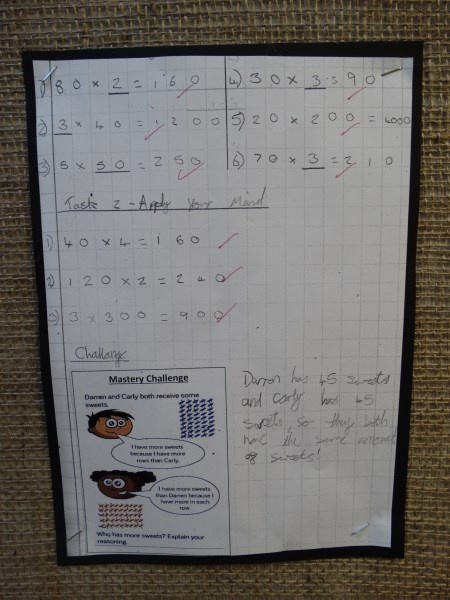 1) 80 × 2 = 160
2) 3 × 40 = 1200
3) 5 × 50 = 250
4) 30 × 3 = 90
5) 20 × 200 = 4000
6) 70 × 3 = 210
Task 2 - Apply Your Mind
1) 40 × 4 = 160
2) 120 × 2 = 240
3) 3 × 300 = 900
Challenge
Mastery Challenge
Darren and Carly both receive some
sweets.
I have more sweets
because I have more
rows than Carly.
I have more sweets
than Darren because I
have more in each
row.
Who has more sweets? Explain your
reasoning.
Darren has 45 sweets
and Carly has 45
sweets so they both
have the same amount
of sweets!